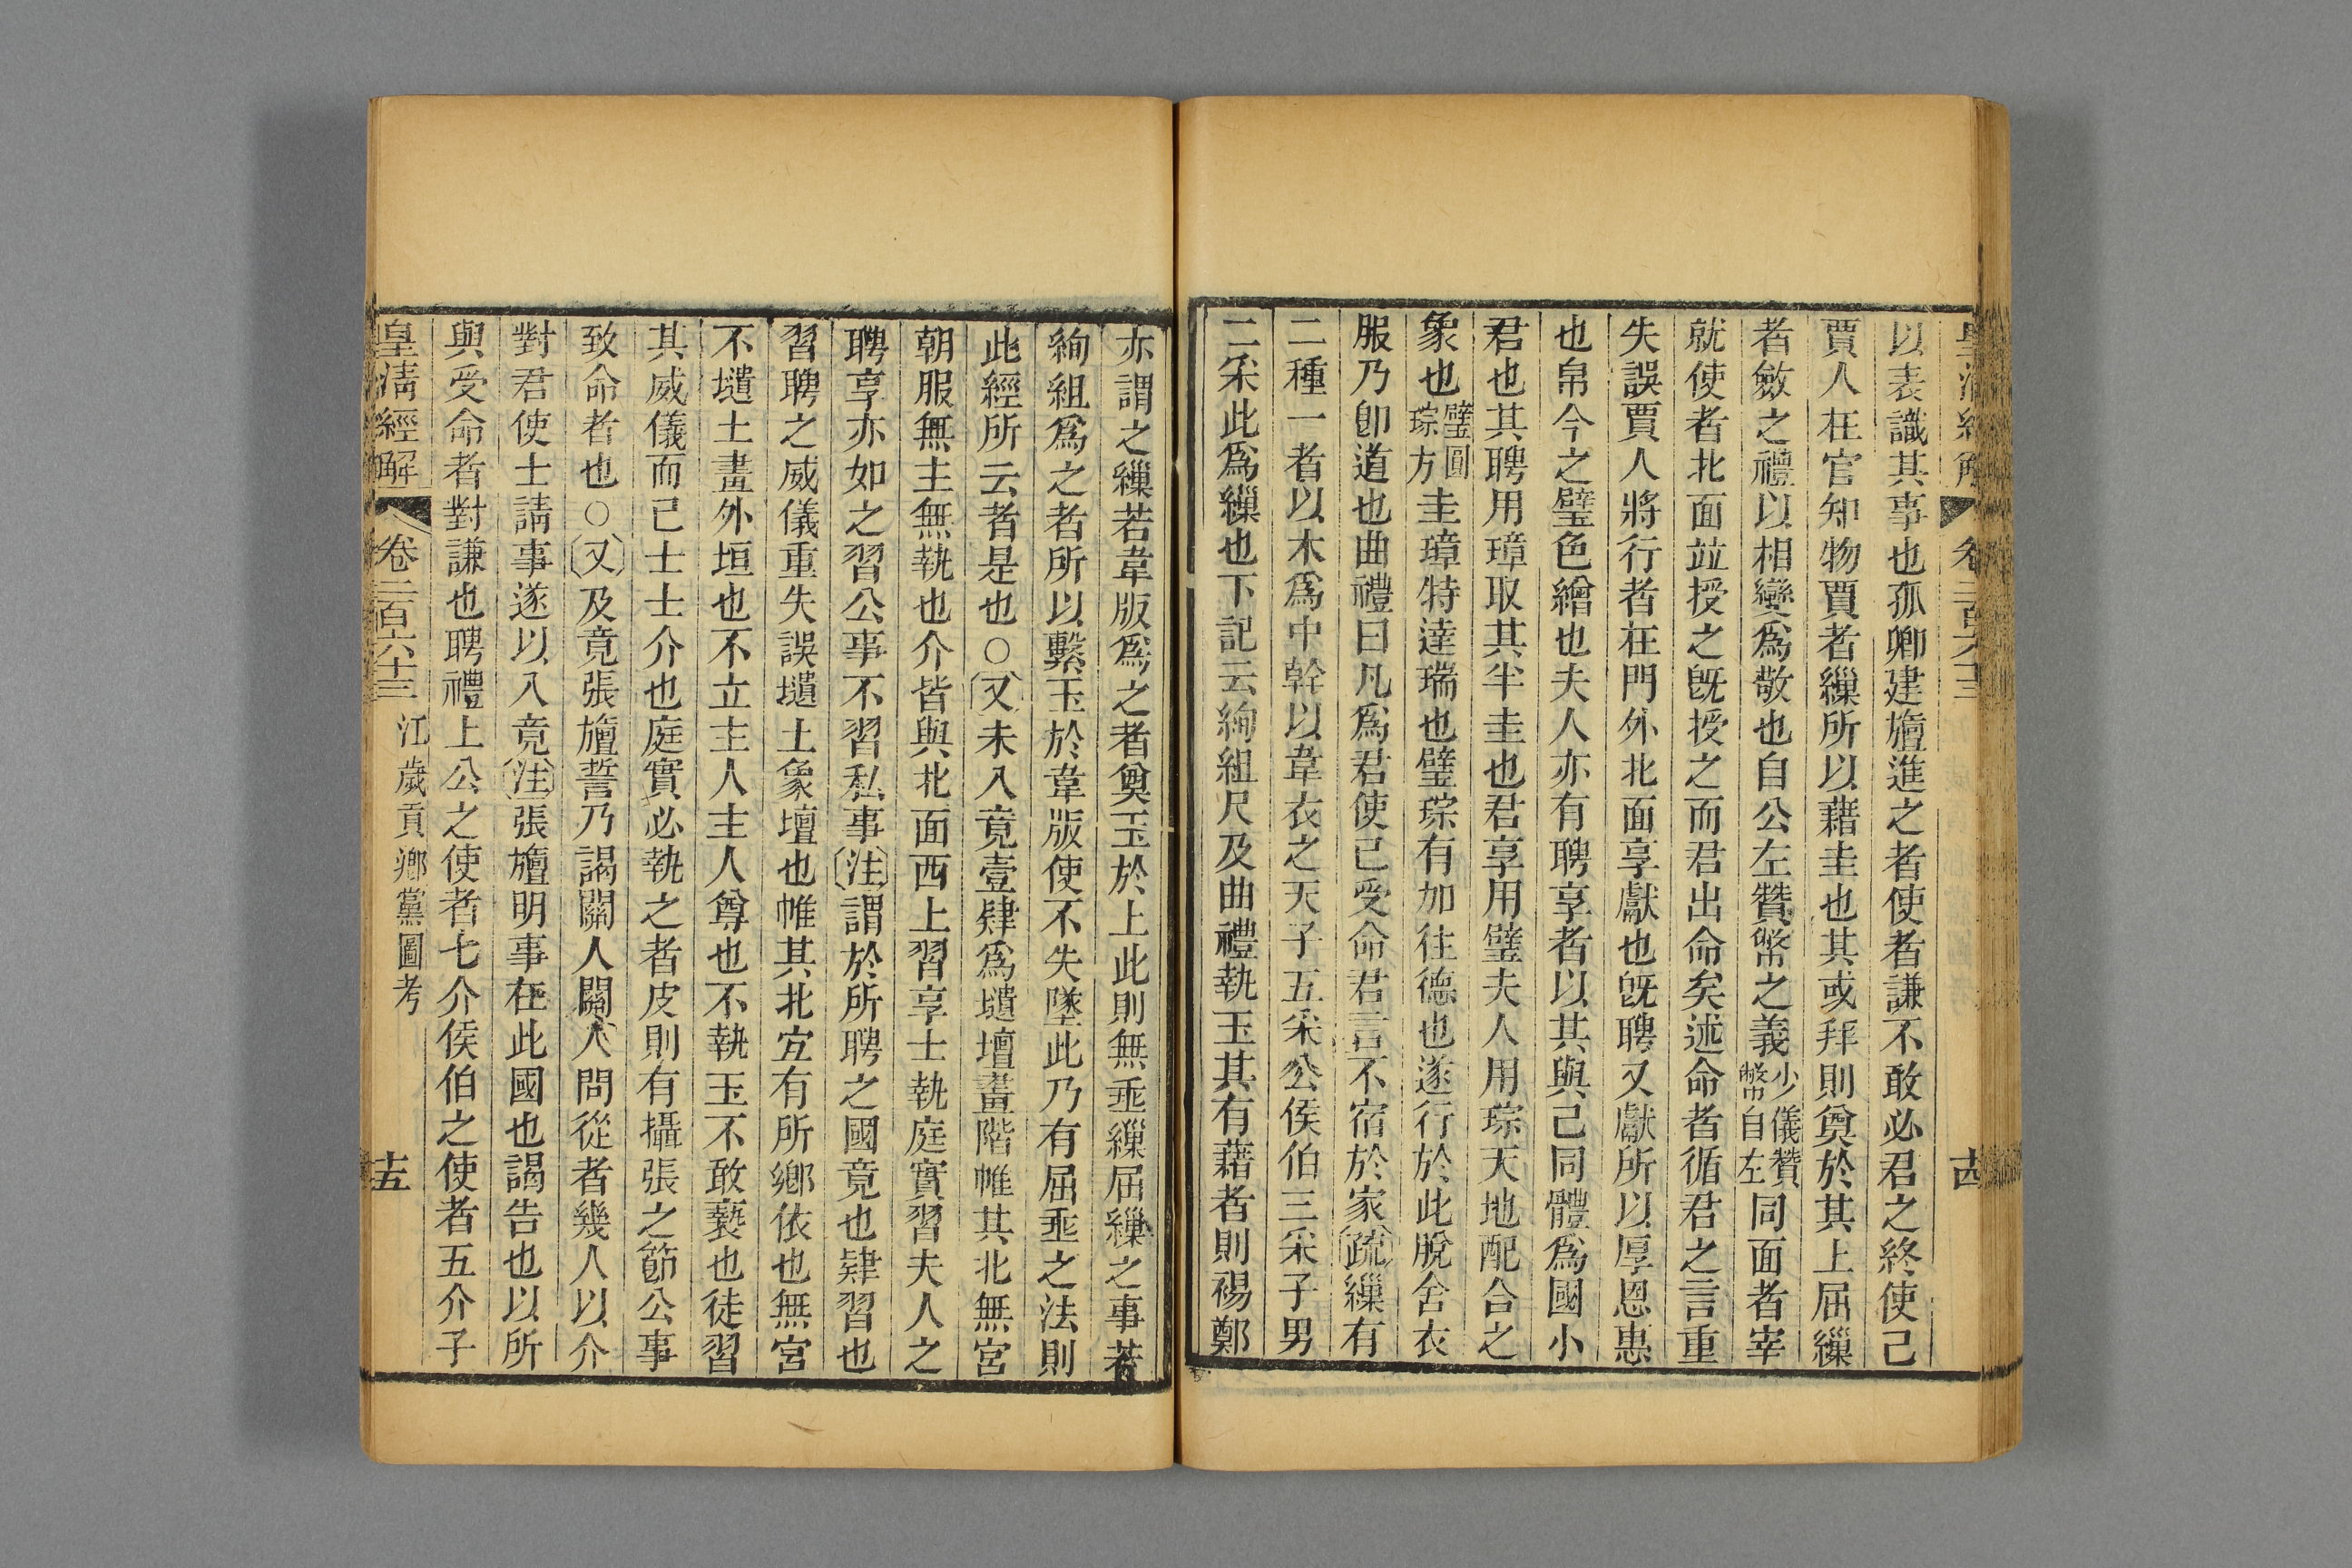 皇清經解 卷二百六十三 十四
以表識其事也孤卿建旜進之者使者謙不敢必君之終使己
賈人在官知物賈者繅所以藉圭也其或拜則奠於其上屈繅
者斂之禮以相變爲敬也自公左贊幣之義少儀贊幣自左同面者宰
就使者北面竝授之旣授之而君出命矣述命者循君之言重
失誤賈人將行者在門外北面享獻也旣聘又獻所以厚恩惠
也帛今之璧色繒也夫人亦有聘享者以其與己同體爲國小
君也其聘用璋取其半圭也君享用璧夫人用琮天地配合之
象也璧圓琮方圭璋特達瑞也璧琮有加往德也遂行於此脫舍衣
服乃卽道也曲禮曰凡爲君使已受命君言不宿於家疏繅有
二種一者以木爲中幹以韋衣之天子五采公侯伯三采子男
二采此爲繅也下記云絢組尺及曲禮執玉其有藉者則裼鄭
亦謂之繅若韋版爲之者奠玉於上此則無垂繅屈繅之事若
絢組爲之者所以繫玉於韋版使不失墜此乃有屈垂之法則
此經所云者是也○又未入竟壹肄爲壝壇畫階帷其北無宮
朝服無主無執也介皆與北面西上習享士執庭實習夫人之
聘享亦如之習公事不習私事注謂於所聘之國竟也肄習也
習聘之威儀重失誤壝土象壇也帷其北宐有所鄉依也無宮
不壝土畫外垣也不立主人主人尊也不執玉不敢褻也徒習
其威儀而已士士介也庭實必執之者皮則有攝張之節公事
致命者也○又及竟張旜誓乃謁關人關人問從者幾人以介
對君使士請事遂以入竟注張旜明事在此國也謁告也以所
與受命者對謙也聘禮上公之使者七介侯伯之使者五介子
皇清經解 卷二百六十三 江歲貢鄉黨圖考 十五